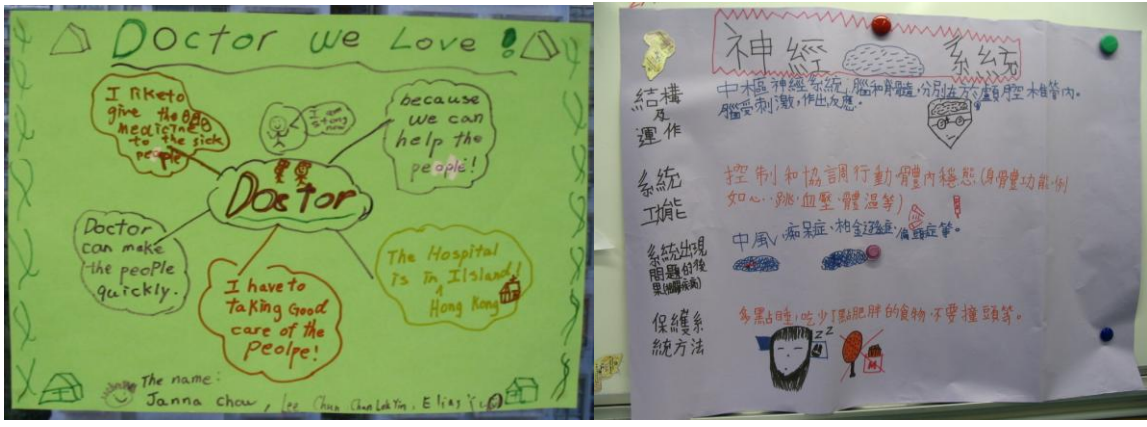 Doctor we Love!
I liketo
give the
medicine
to the sick
people
I am
strong
now
because
we can
help the
people!
Doctor
Doctor
can make
the people
quickly.
I have to
taking Good
care of the
Peolpe!
The Hospital
is in Iisland!
Hong Kong
The name:
Janna Chow, Lee Chun Chan Lok Yin, Elias
神經 系統
結構
及
運作
中樞神經系統:腦和脊髓,分別在於顱腔椎管內。
腦受刺激,作出反應。
系統
功能
控制和協調行動,體內穩態(身體功能,例
如心跳,血壓,體溫等)
系統出現
問題的後
果
中風,痴呆症,柏金遜症,偏頭症等。
保護系
統方法
多點睡,吃少了點肥胖的食物,不要撞頭等。
zZ